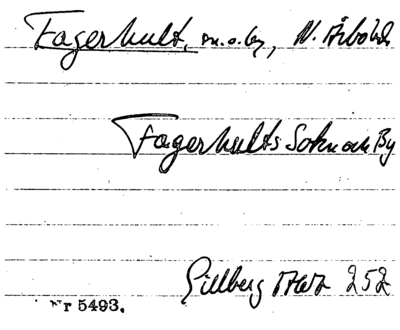 Fagerhult, sn.o.by, N. Åsbo hd
Fagerhults Soknoch By
Gillberg 1767 252
Nr 5493.